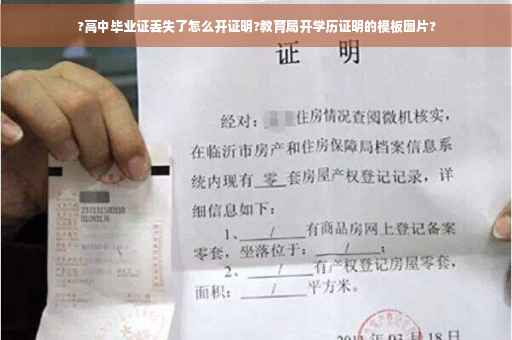 ?高中毕业证丢失了怎么开证明?教育局开学历证明的模板图片?
证 明
经对: 住房情况查阅微机核实,
在临沂市房产和住房保障局档案信息系
统内现有 零 套房屋产权登记记录,详
细信息如下:
1、 / 有商品房网上登记备案
零套,坐落位于: / ;
2、 / 有产权登记房屋零套,
面积: / 平方米。
03月18日